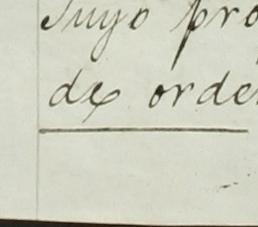 suyo pro
de orde